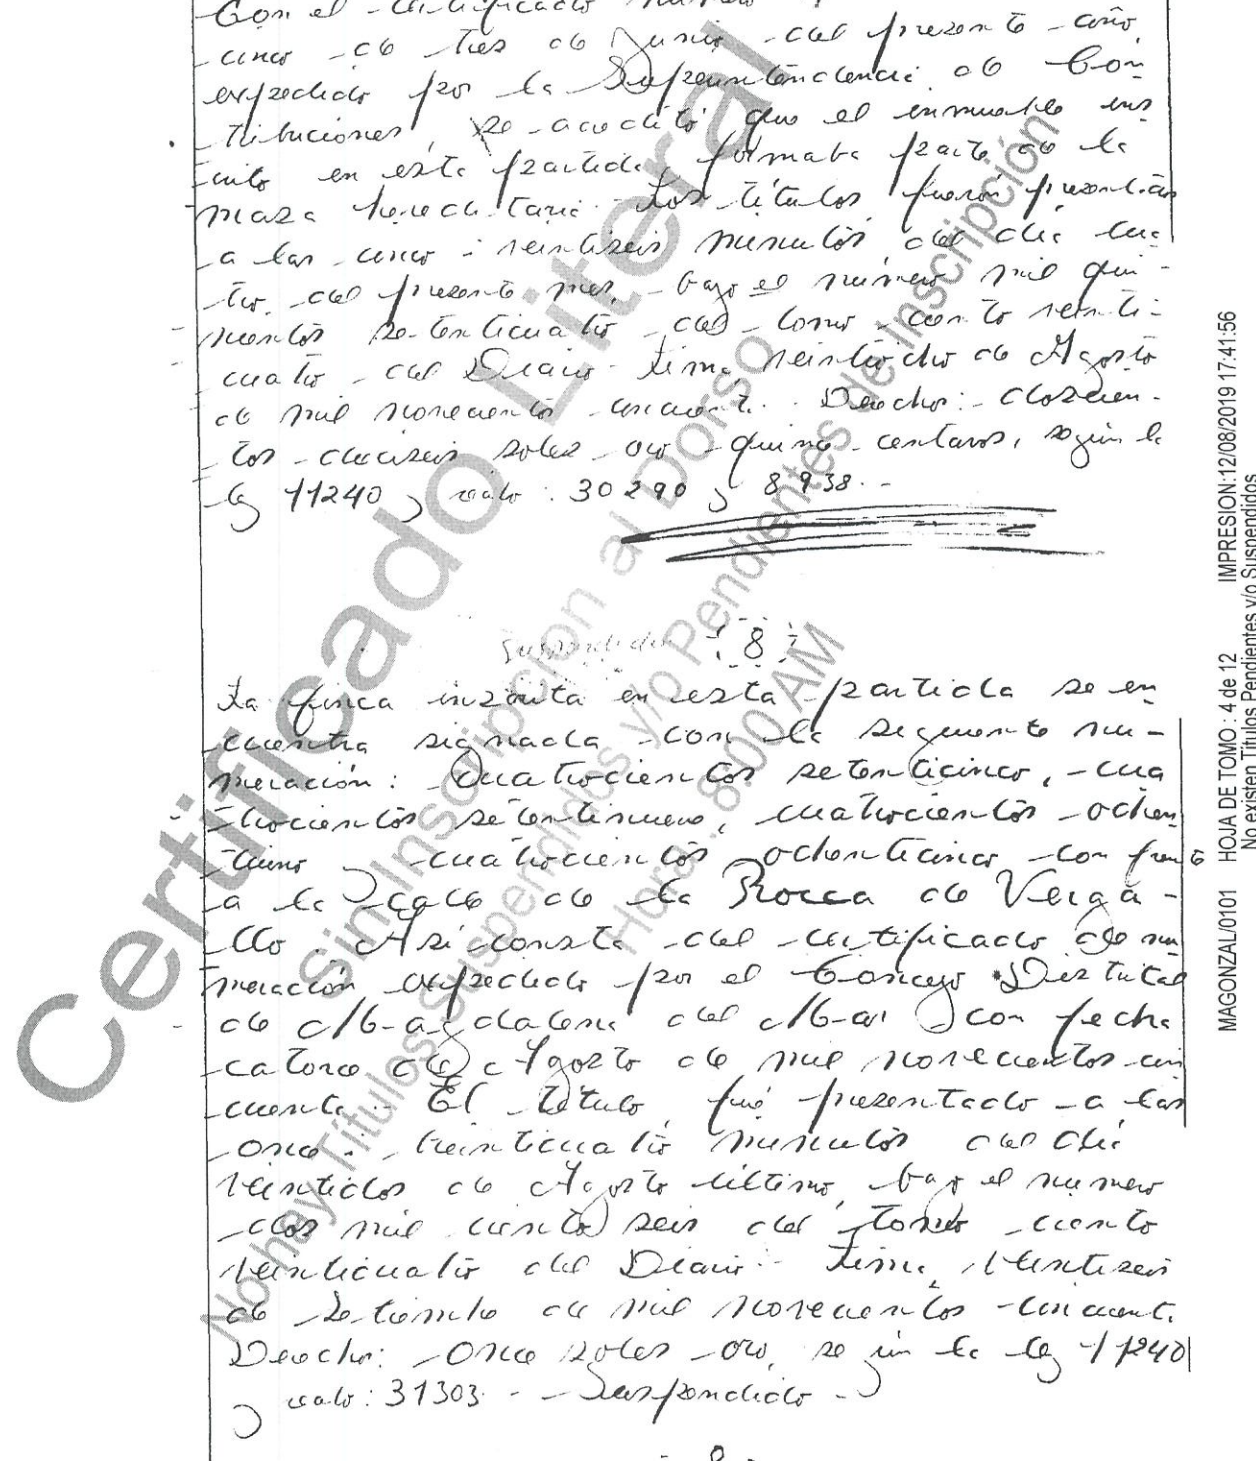 Con el certificado número
cinco de tres de Junio del presente año,
expedido por la Superintendencia de Con
tribuciones, se acreditó que el inmueble ins
crito en esta partida formaba parte de la
masa hereditaria. Los títulos fueron presentados
a las cinco i veintiseis minutos del día cua
tro del presente mes, bajo el número mil qui-
nientos setenticuatro del tomo ciento veinti-
cuatro del Diario. Lima, veintiocho de Agosto
de mil novecientos cincuenta. Derechos: doscien-
tos dieciseis soles oro quince centavos, según la
ley 11240 y recibo: 30290 y 8938.-
Suspendido 8
La finca inscrita en esta partida se en
cuentra signada con la siguiente nu-
meración: Cuatrocientos setenticinco, cua
trocientos setentinueve, cuatrocientos ochen
tiuno y cuatrocientos ochenticinco con frente
a la calle de la Rocca de Verga-
llo. Así consta del certificado de nu
meración expedido por el Concejo Distrital
de Magdalena del Mar con fecha
catorce de Agosto de mil novecientos cin
cuenta. El título fué presentado a las
once i treinticuatro minutos del día
veintidos de Agosto último, bajo el numero
dos mil ciento seis del tomo ciento
veinticuatro del Diario.- Lima, veintiseis
de Setiembre de mil novecientos cincuenta.
Derechos: Once soles oro, según la ley 11240
y recibo: 31303 - - Suspendido -
Certificado Literal
Sin Inscripcion al Dorso
No hay Títulos Suspendidos y/o Pendientes de Inscripción
Hora : 8:00 AM
MAGONZAL/0101 HOJA DE TOMO : 4 de 12 IMPRESION:12/08/2019 17:41:56
No existen Títulos Pendientes y/o Suspendidos